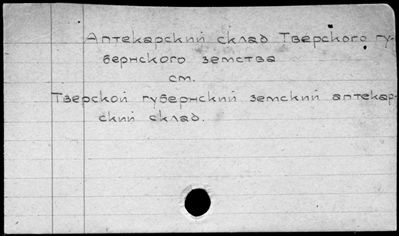 Аптекарский склад Тверского гу-
бернского земства
см.
Тверской губернский земский аптекар-
ский склад.